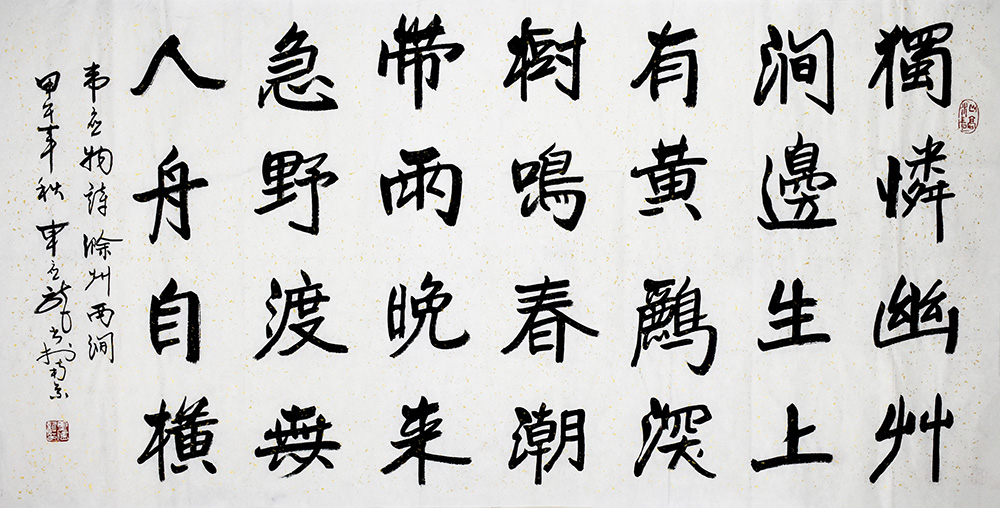 獨憐幽艸
澗邊生上
有黃鸝深
樹鳴春潮
帶雨晚来
急野渡無
人舟自橫
韦应物詩滁州西澗
甲午年秋